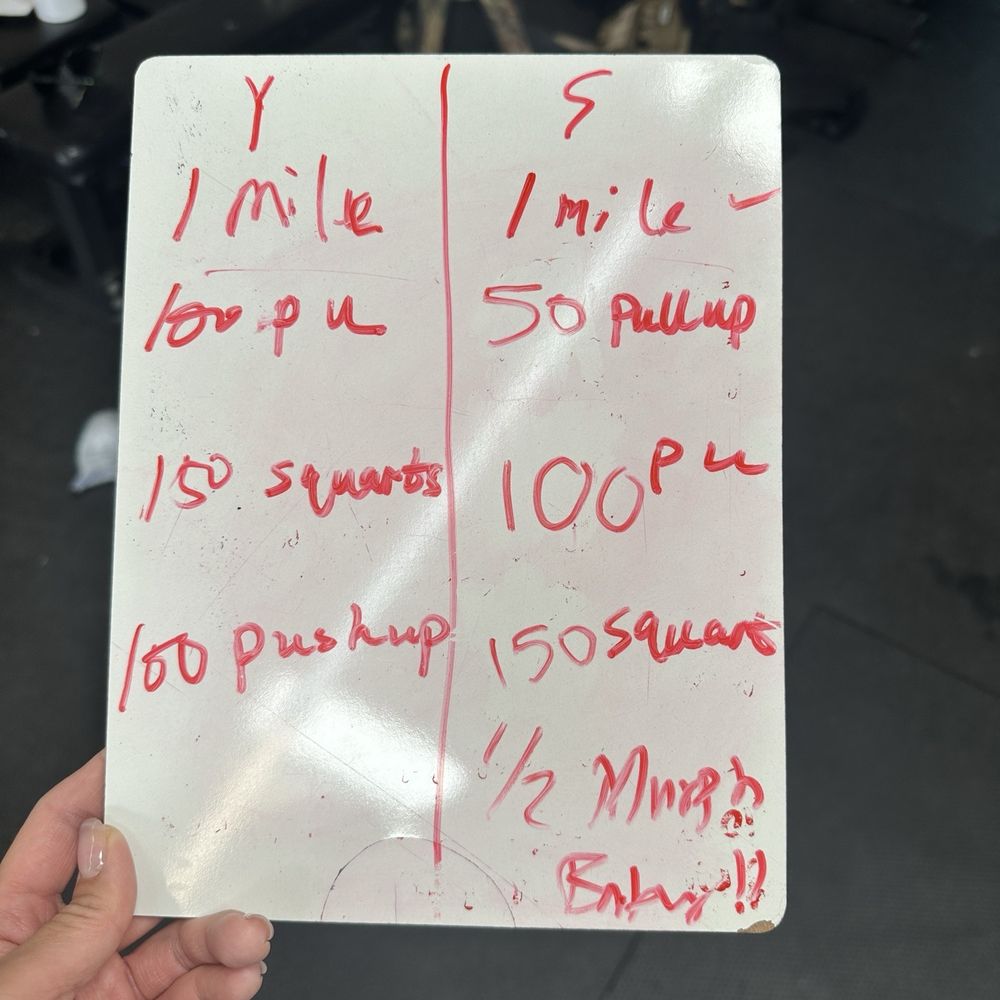 Y
1 Mile
100 pu
150 squarts
100 pushup
S
1 mile ✓
50 pullup
100 pu
150 squart
1/2 Murph
!!